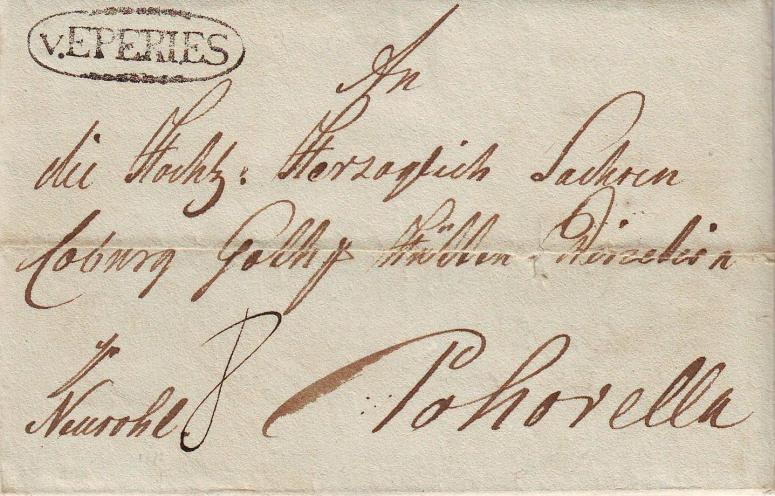 v. EPERIES
An
die Hochl: Herzoglich Sachsen
Coburg Gotha Hütten Direction
p Neusohl. 8 Pohorella